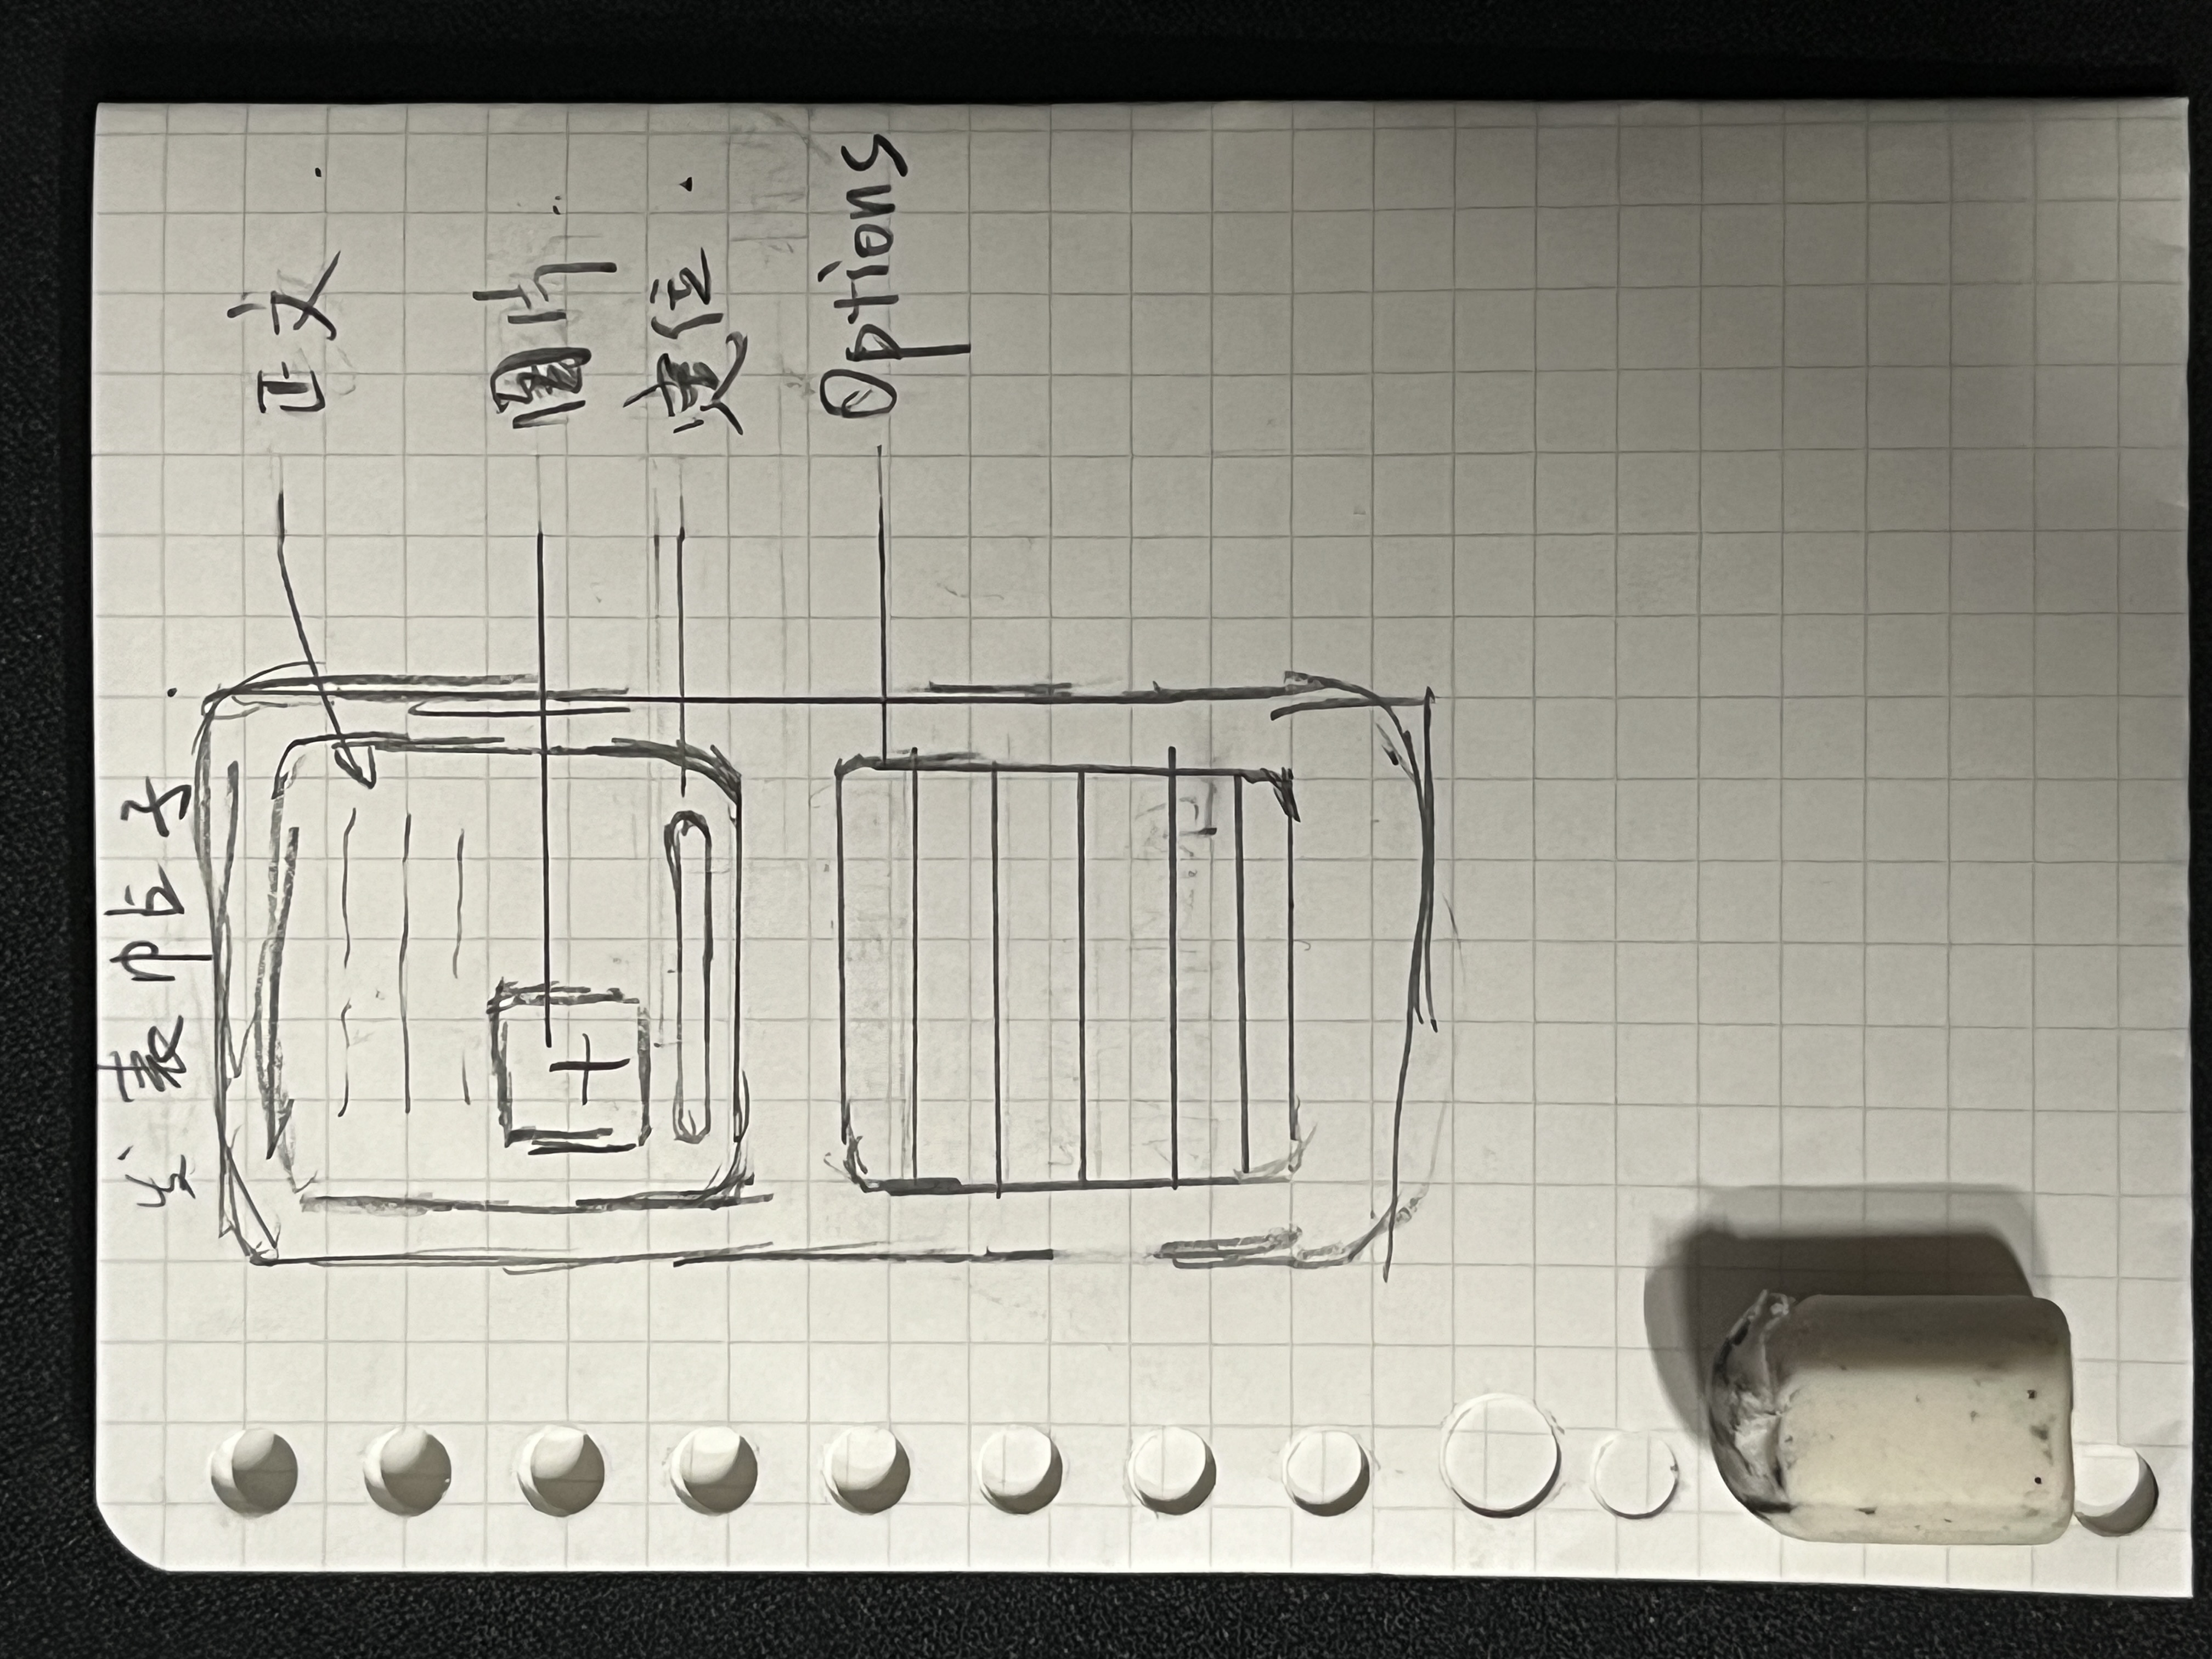 发表帖子.
正文.
图片.
定位.
Options